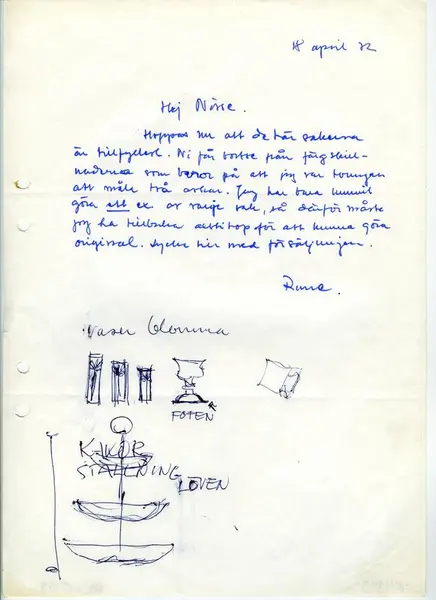 18 april 72
Hej Nisse.
Hoppas nu att de här sakerna
är tillfyllest. Ni får bortse från färgskill-
naderna som beror på att jag var tvungen
att måla två askar. Jag har bara hunnit
göra ett ex av varje sak, så därför måste
jag ha tillbaka alltihop för att kunna göra
original. Lycka till med försäljningen.
Rune.
vaser blomma
FOTEN
KAKOR
STÄLLNING
LÖVEN